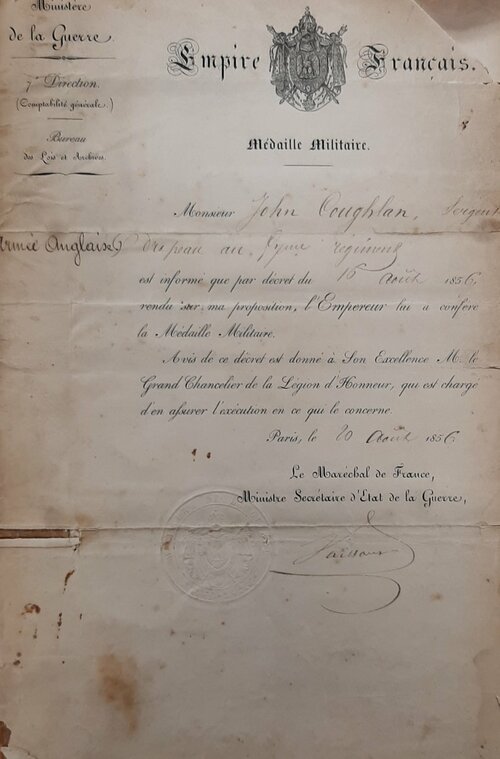 Ministère
de la Guerre.
7e Direction.
(Comptabilité générale.)
Bureau
des Lois et Archives.
Empire Français.
Médaille Militaire.
Monsieur John Coughlan, Sergent
Armée Anglaise) Drapeau au régiment
est informé que par décret du 16 Août 1856,
rendu sur ma proposition, l'Empereur lui a conféré
la Médaille Militaire.
Avis de ce décret est donné à Son Excellence M. le
Grand Chancelier de la Légion d'Honneur, qui est chargé
d'en assurer l'exécution en ce qui le concerne.
Paris, le 20 Août 1856.
Le Maréchal de France,
Ministre Secrétaire d'Etat de la Guerre,
Vaillant